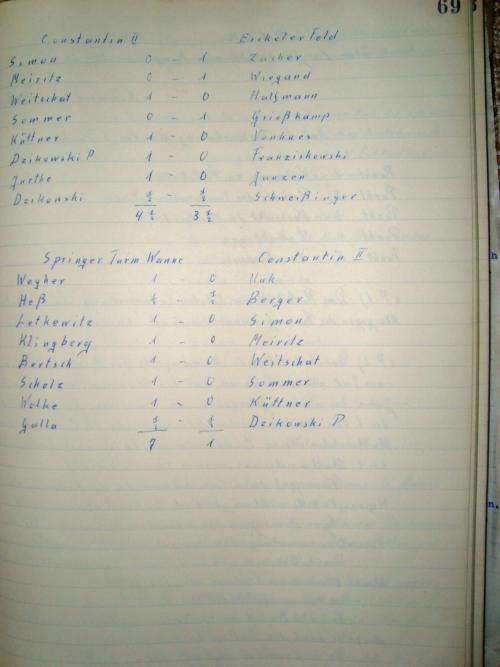 69
Constantin II Eickeler Feld
Simon 0 - 1 Zacher
Meiritz 0 - 1 Wiegand
Weitschat 1 - 0 Halfmann
Sommer 0 - 1 Grießkamp
Küttner 1 - 0 Vonhues
Dzikowski P 1 - 0 Franziskowski
Jurthe 1 - 0 Janzen
Dzikowski ½ - ½ Schweißinger
4 ½ 3 ½
Springer Turm Wanne Constantin II
Wegher 1 - 0 Kuk
Heß ½ - ½ Berger
Letkewitz 1 - 0 Simon
Klingberg 1 - 0 Meiritz
Bertsch 1 - 0 Weitschat
Scholz 1 - 0 Sommer
Wolke 1 - 0 Küttner
Galla ½ - ½ Dzikowski P
7 1